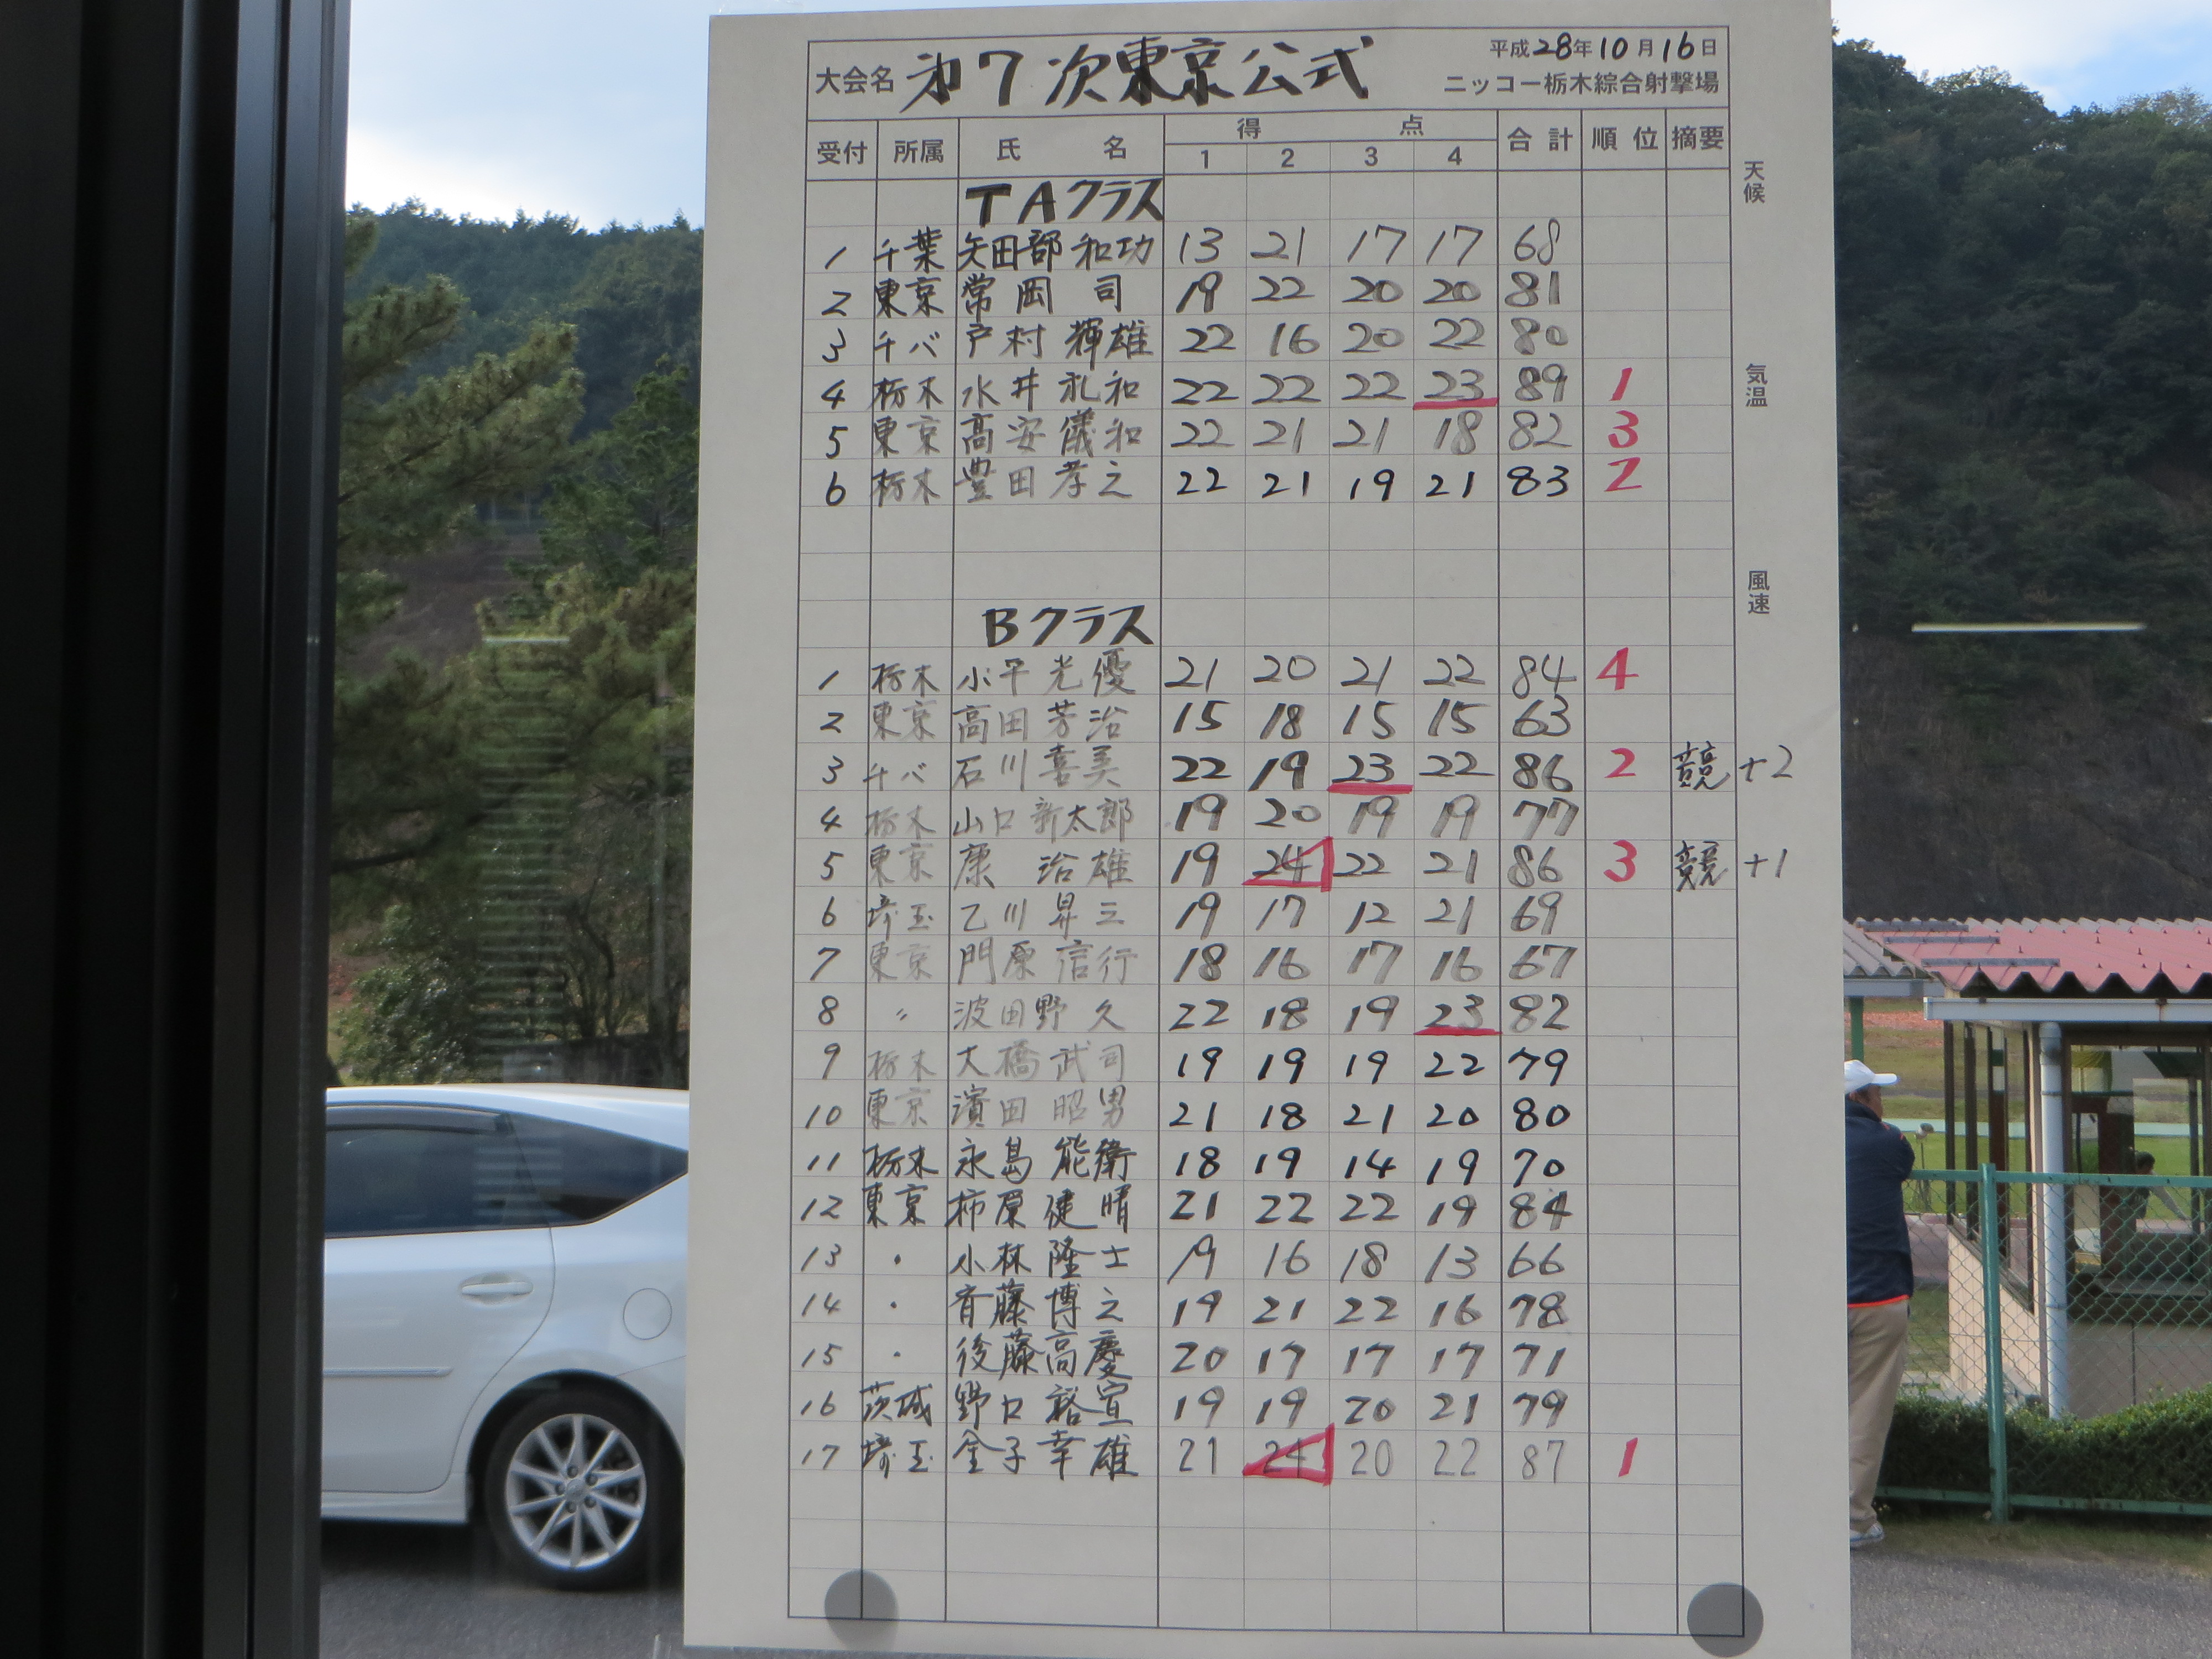 平成28年10月16日
大会名 第7次東京公式 ニッコー栃木綜合射撃場
受付 所属 氏名 得点 合計 順位 摘要
1 2 3 4
天候
TAクラス
1 千葉 矢田部和功 13 21 17 17 68
2 東京 常岡司 19 22 20 20 81
3 千バ 戸村輝雄 22 16 20 22 80
気温
4 栃木 水井礼和 22 22 22 23 89 1
5 東京 高安儀和 22 21 21 18 82 3
6 栃木 豊田孝之 22 21 19 21 83 2
風速
Bクラス
1 栃木 小平光優 21 20 21 22 84 4
2 東京 高田芳治 15 18 15 15 63
3 千バ 石川喜美 22 19 23 22 86 2 競 +2
4 栃木 山口新太郎 19 20 19 19 77
5 東京 康治雄 19 24 22 21 86 3 競 +1
6 埼玉 乙川昇三 19 17 12 21 69
7 東京 門原信行 18 16 17 16 67
8 〃 波田野久 22 18 19 23 82
9 栃木 大橋武司 19 19 19 22 79
10 東京 濱田昭男 21 18 21 20 80
11 栃木 永島能衛 18 19 14 19 70
12 東京 柿原健晴 21 22 22 19 84
13 · 小林隆士 19 16 18 13 66
14 · 斉藤博之 19 21 22 16 78
15 · 後藤高慶 20 17 17 17 71
16 茨城 野口裕宣 19 19 20 21 79
17 埼玉 金子幸雄 21 24 20 22 87 1